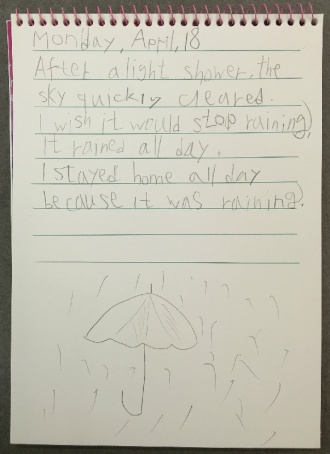 Monday, April, 18
After a light shower, the
sky quickly cleared.
I wish it would stop raining,
It rained all day.
I stayed home all day
because it was raining.